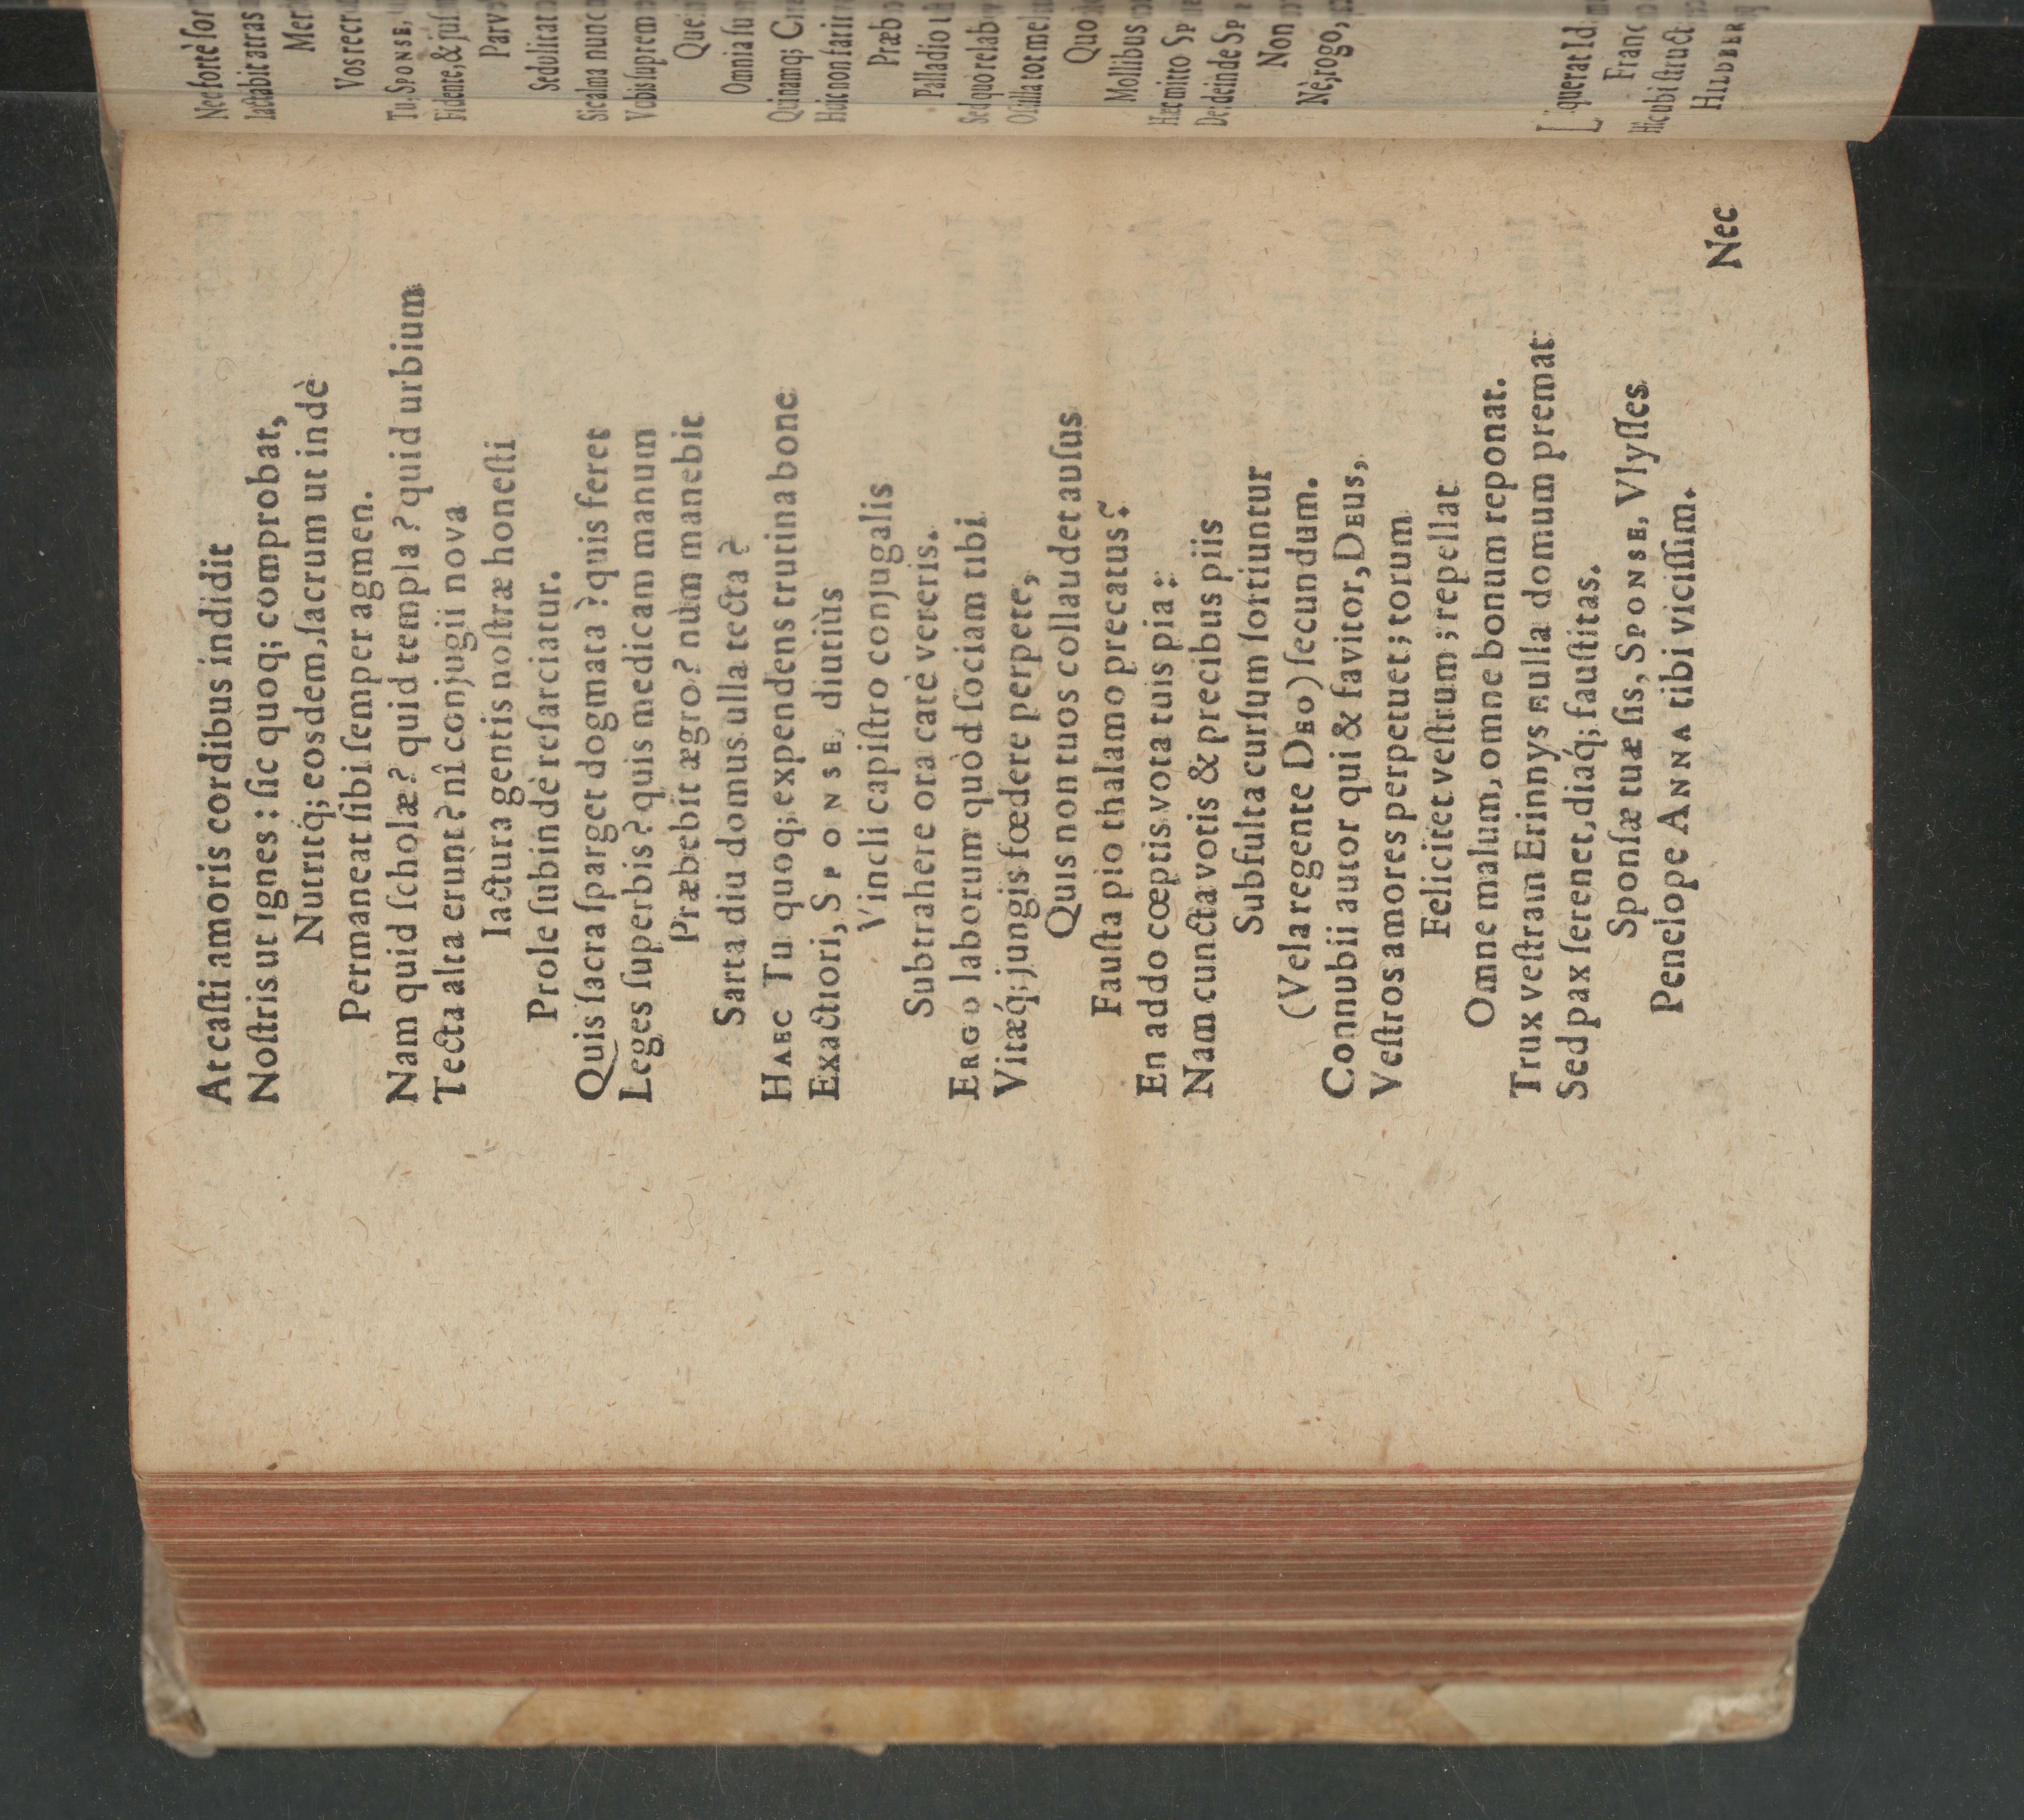 At caſti amoris cordibus indidit
Noſtris ut ignes : ſic quoq; comprobat,
Nutritq́; eosdem, ſacrum ut indè
Permaneat ſibi ſemper agmen.
Nam quid ſcholæ? quid templa? quid urbium
Tecta alta erunt? nî conjugii nova
Iactura gentis noſtræ honeſti
Prole ſubindè reſarciatur.
Quis ſacra ſparget dogmata? quis feret
Leges ſuperbis? quis medicam manum
Præbebit ægro? nùm manebit
Sarta diu domus ulla tecta?
HAEC Tu quoq; expendens trutina bone
Exactiori, SPONSE, diutiùs
Vincli capiſtro conjugalis
Subtrahere ora catè vereris.
ERGO laborum quòd ſociam tibi
Vitæq́; jungis fœdere perpete,
Quis non tuos collaudet auſus
Fauſta pio thalamo precatus?
En addo cœptis vota tuis pia:
Nam cuncta votis & precibus piis
Subfulta curſum ſortiuntur
(Vela regente DEO) ſecundum.
Connubii autor qui & favitor, DEUS,
Veſtros amores perpetuet; torum
Felicitet veſtrum; repellat
Omne malum, omne bonum reponat.
Trux veſtram Erinnys nulla domum premat
Sed pax ſerenet, diaq́; fauſtitas.
Sponſæ tuæ ſis, SPONSE, Vlyſſes
Penelope ANNA tibi viciſſim.
Nec
Nec fortè
Iactabit atras
Vos
Tu, SPONSE,
Fidente, &
Sic alma nunc
Vobis
Omnia
Quinamq;
Huic non
Palladio
Sed quo
Quo
Mollibus
Hæc mitto
Dei deinde
Non
Nè, rogo,
Liquerat
Hic ubi